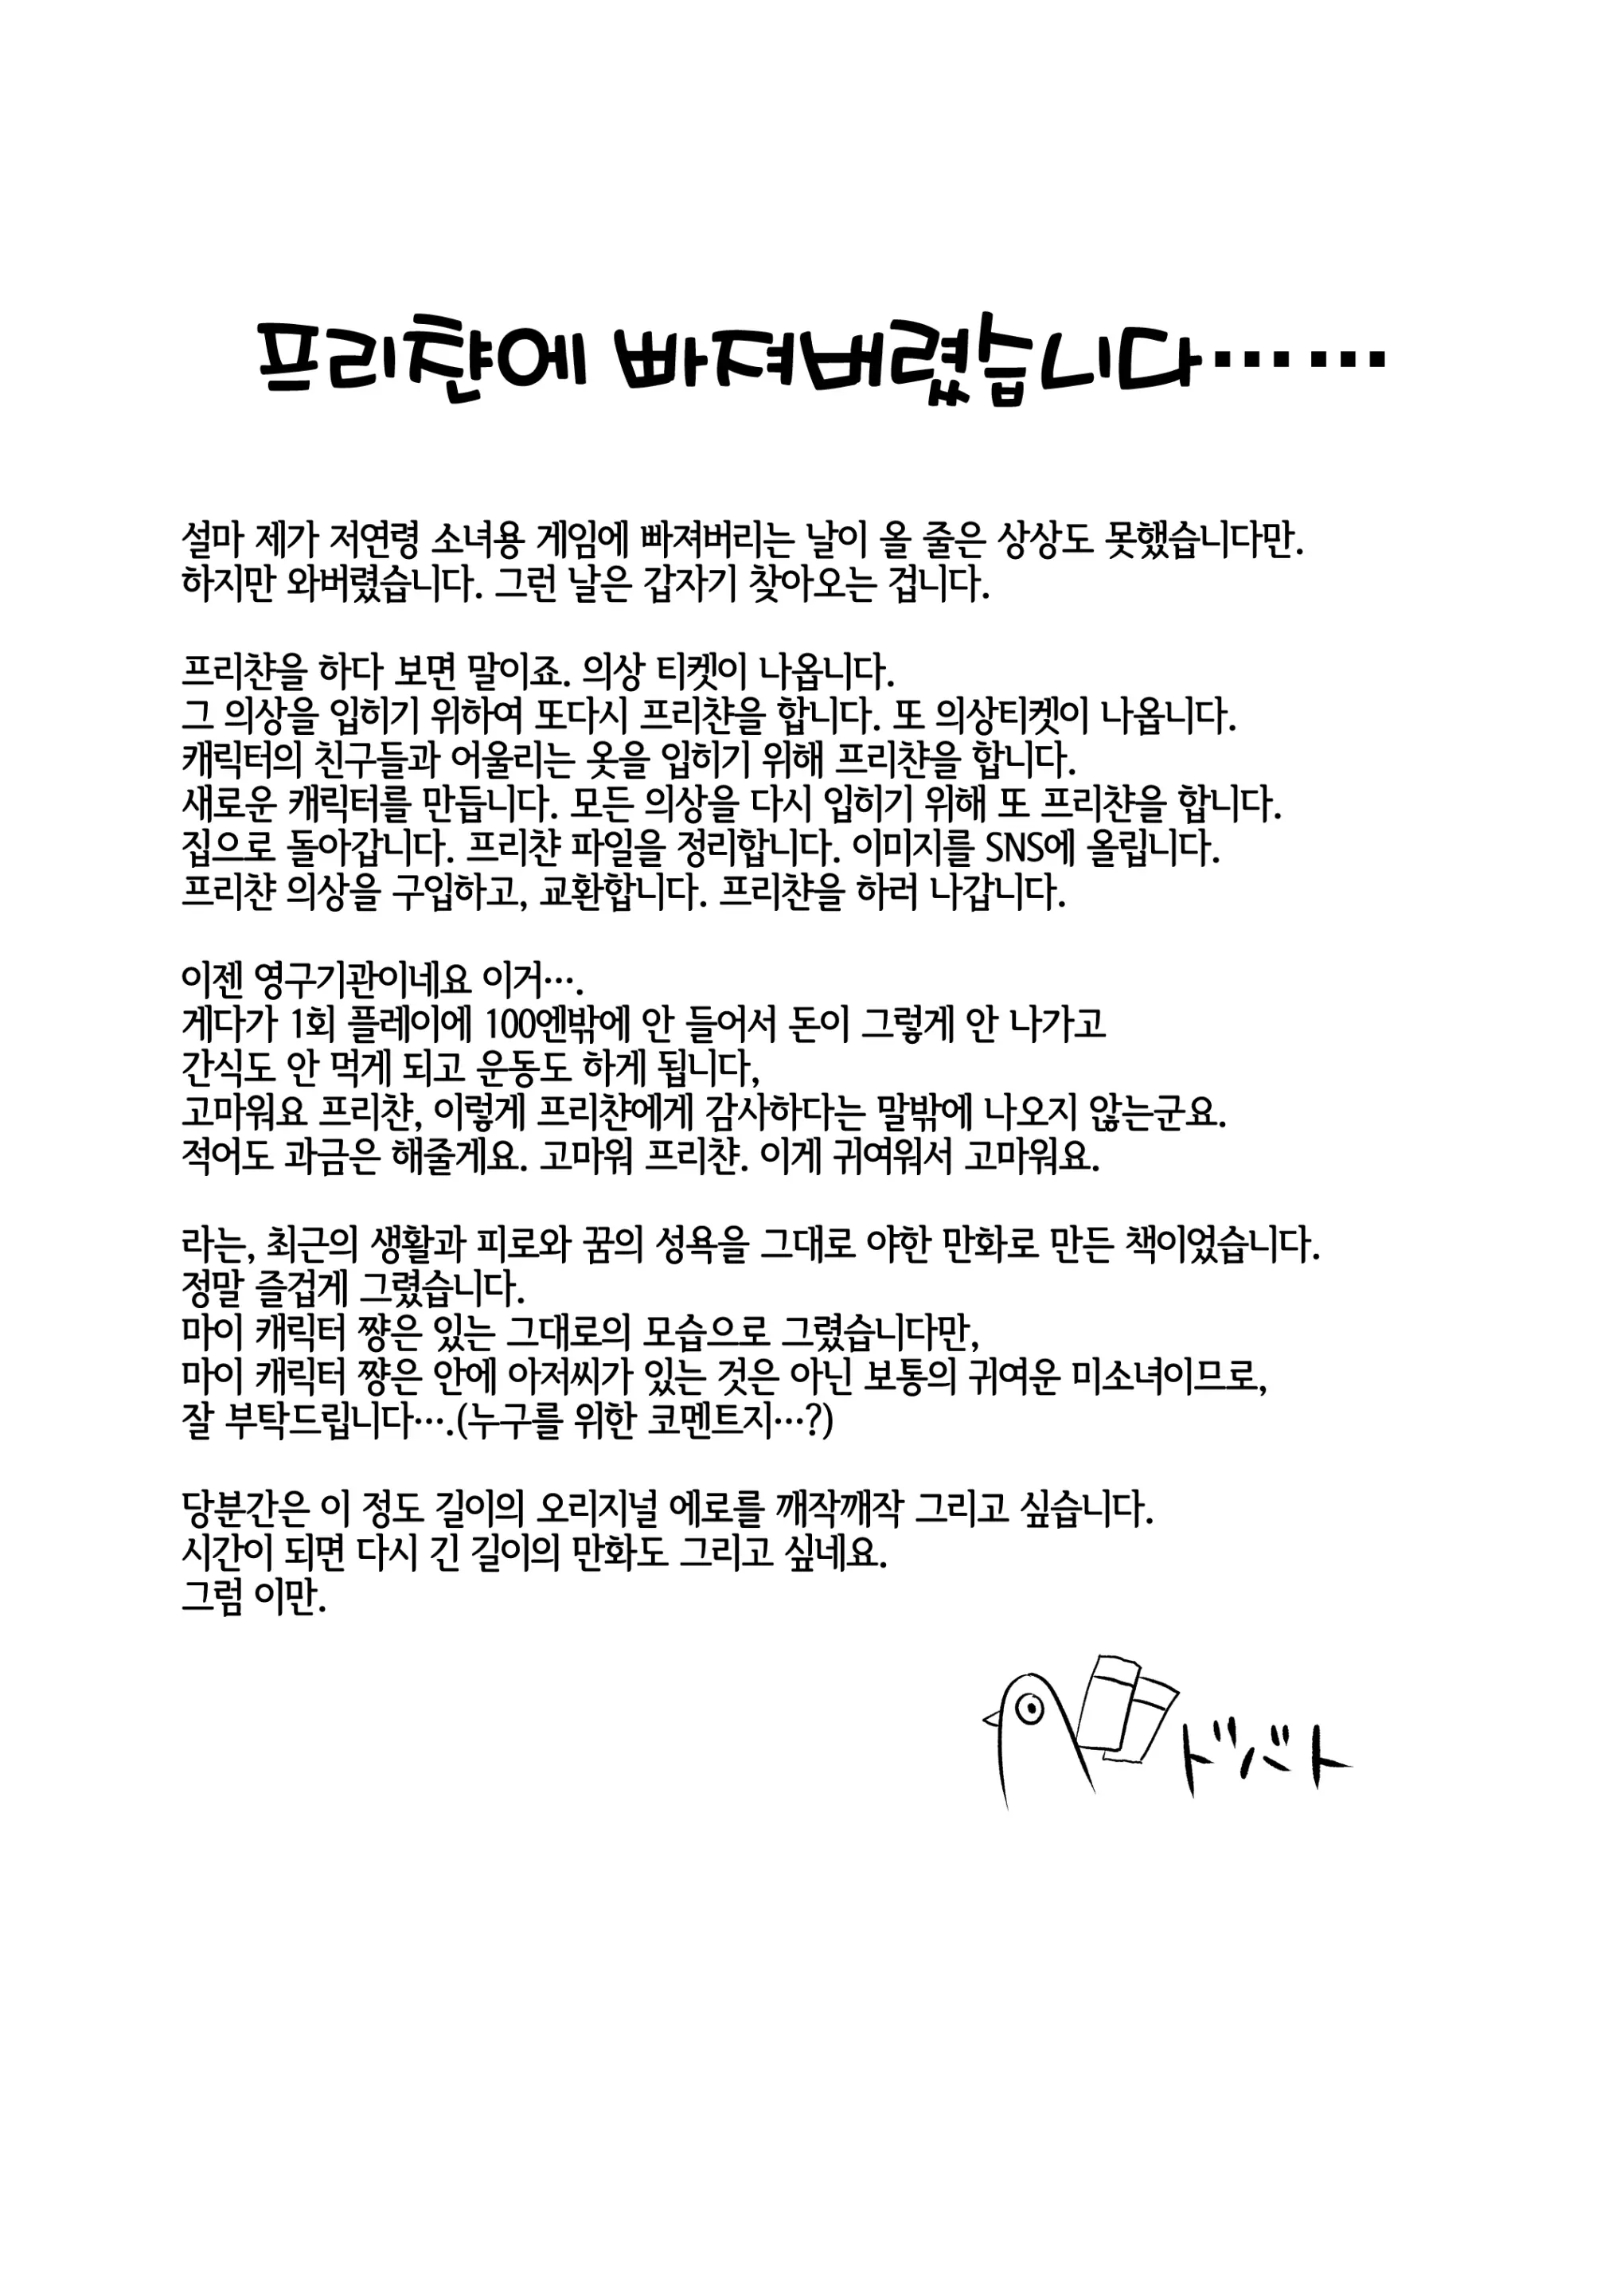 프리챤에 빠져버렸습니다……
설마 제가 저연령 소녀용 게임에 빠져버리는 날이 올 줄은 상상도 못했습니다만.
하지만 와버렸습니다. 그런 날은 갑자기 찾아오는 겁니다.
프리챤을 하다 보면 말이죠. 의상 티켓이 나옵니다.
그 의상을 입히기 위하여 또다시 프리챤을 합니다. 또 의상티켓이 나옵니다.
캐릭터의 친구들과 어울리는 옷을 입히기 위해 프리챤을 합니다.
새로운 캐릭터를 만듭니다. 모든 의상을 다시 입히기 위해 또 프리챤을 합니다.
집으로 돌아갑니다. 프리챤 파일을 정리합니다. 이미지를 SNS에 올립니다.
프리챤 의상을 구입하고, 교환합니다. 프리챤을 하러 나갑니다.
이젠 영구기관이네요 이거….
게다가 1회 플레이에 100엔밖에 안 들어서 돈이 그렇게 안 나가고
간식도 안 먹게 되고 운동도 하게 됩니다,
고마워요 프리챤, 이렇게 프리챤에게 감사하다는 말밖에 나오지 않는군요.
적어도 과금은 해줄게요. 고마워 프리챤. 이게 귀여워서 고마워요.
라는, 최근의 생활과 피로와 꿈의 성욕을 그대로 야한 만화로 만든 책이었습니다.
정말 즐겁게 그렸습니다.
마이 캐릭터 쨩은 있는 그대로의 모습으로 그렸습니다만,
마이 캐릭터 쨩은 안에 아저씨가 있는 것은 아닌 보통의 귀여운 미소녀이므로,
잘 부탁드립니다….(누구를 위한 코멘트지…?)
당분간은 이 정도 길이의 오리지널 에로를 깨작깨작 그리고 싶습니다.
시간이 되면 다시 긴 길이의 만화도 그리고 싶네요.
그럼 이만.
ドバト